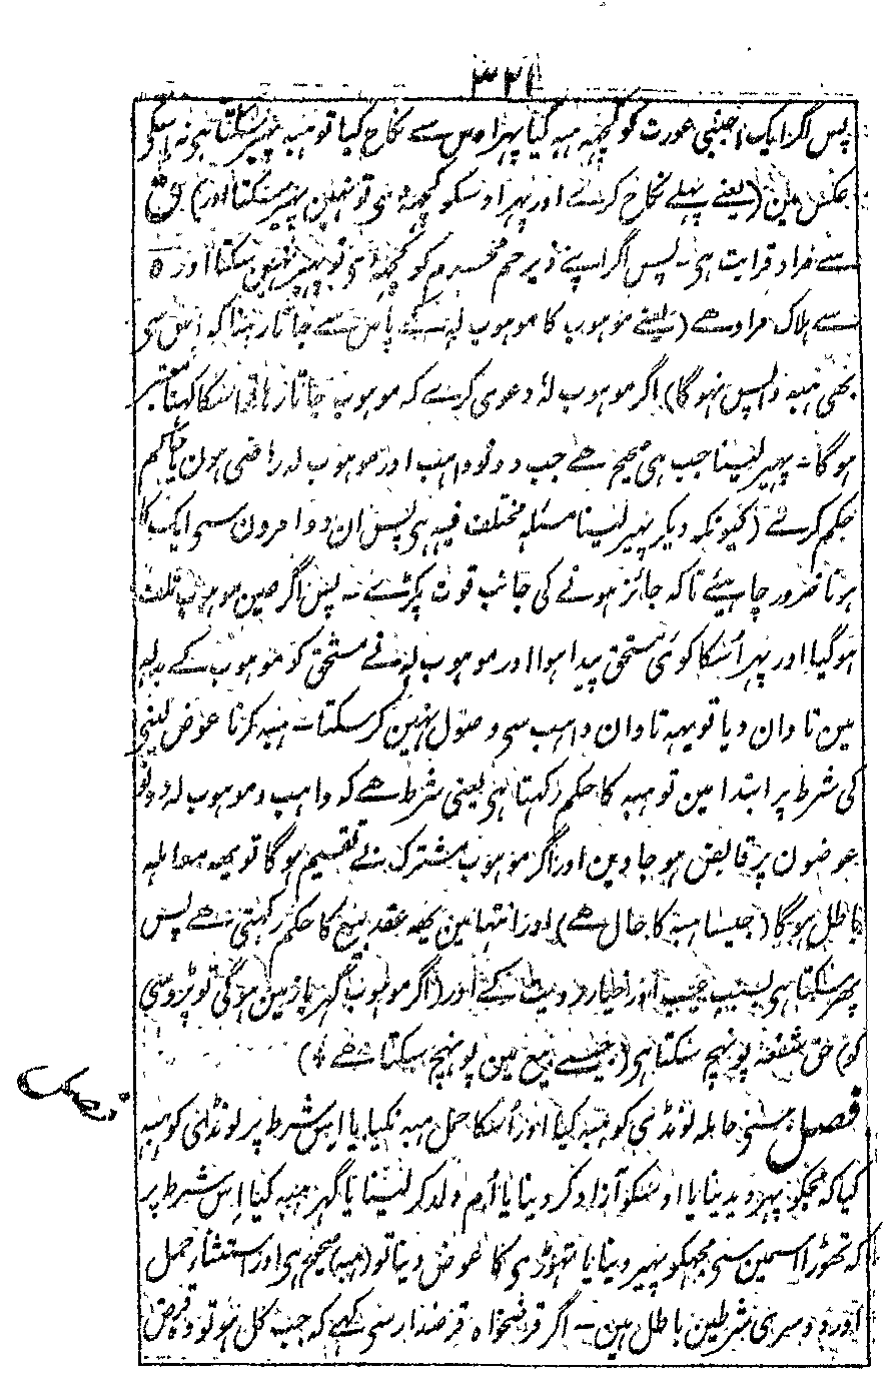 ۳۲۱
پس اگر ایک اجنبی عورت کو کچھہ ہبہ کیا پہر اوس سے نکاح کیا تو ہبہ پہیر سکتا ہی نہ اسکی
عکس مین (یعنے پہلے نکاح کرلے اور پہر اوسکو کچھہ دی تو نہین پہیر سکتا اور) ق
سے مراد قرابت ہی۔ پس اگر اپنے ذیرحم محرم کو کچھہ دی تو پہیر نہین سکتا اور ہ
سے ہلاک مراد ہے (یعنے موہوب کا موہوب لہ کے پاس سے جاتا رہنا کہ اس سی
بھی ہبہ واپس نہوگا) اگر موہوب لہ دعوی کرے کہ موہوب جاتا رہا تو اسکا کہنا معتبر
ہوگا۔ پہیر لینا جب ہی صحیح ہے جب دونو واہب اور موہوب لہ راضی ہون یا حاکم
حکم کرے (کیونکہ دیکر پہیر لینا مسئلہ مختلف فیہ ہی پس ان دو امرون سی ایک کا
ہونا ضرور چاہیئے تاکہ جائز ہونے کی جانب قوت پکڑے۔ پس اگر عین موہوب تلف
ہوگیا اور پہر اُسکا کوئی مستحق پیدا ہوا اور موہوب لہ نے مستحق کو موہوب کے بدلہ
مین تاوان دیا تو یہہ تاوان واہب سی وصول نہین کرسکتا۔ ہبہ کرنا عوض لینی
کی شرط پر ابتدا مین تو ہبہ کا حکم رکہتا ہی یعنی شرط ہے کہ واہب و موہوب لہ دونو
عوضون پر قابض ہو جاوین اور اگر موہوب مشترک بے تقسیم ہوگا تو یہہ معاملہ
باطل ہوگا (جیسا ہبہ کا حال ہے) اور انتہا مین یہہ عقد بیع کا حکم رکہتی ہے پس
پھر سکتا ہی بسبب عیب اور خیار رویت کے اور (اگر موہوب گہر یا زمین ہوگی تو پڑوسی
کو) حق شفعہ پونہچ سکتا ہی (جیسے بیع مین پونہچ سکتا ہے)
فصل
فصل کسی حاملہ لونڈی کو ہبہ کیا اور اُسکا حمل ہبہ نکیا یا اس شرط پر لونڈی کو ہبہ
کیا کہ مجکو پہر دیدینا یا اوسکو آزاد کر دینا یا اُم ولد کر لینا یا گہر ہبہ کیا اِس شرط پر
کہ تھوڑا اسمین سی مجہکو پہیر دینا یا تہوڑی کا عوض دینا تو (ہبہ) صحیح ہی اور استثناء حمل
اور دوسری شرطین باطل ہین۔ اگر قرضخواہ قرضدار سی کہے کہ جب کل ہو تو وہ قرض